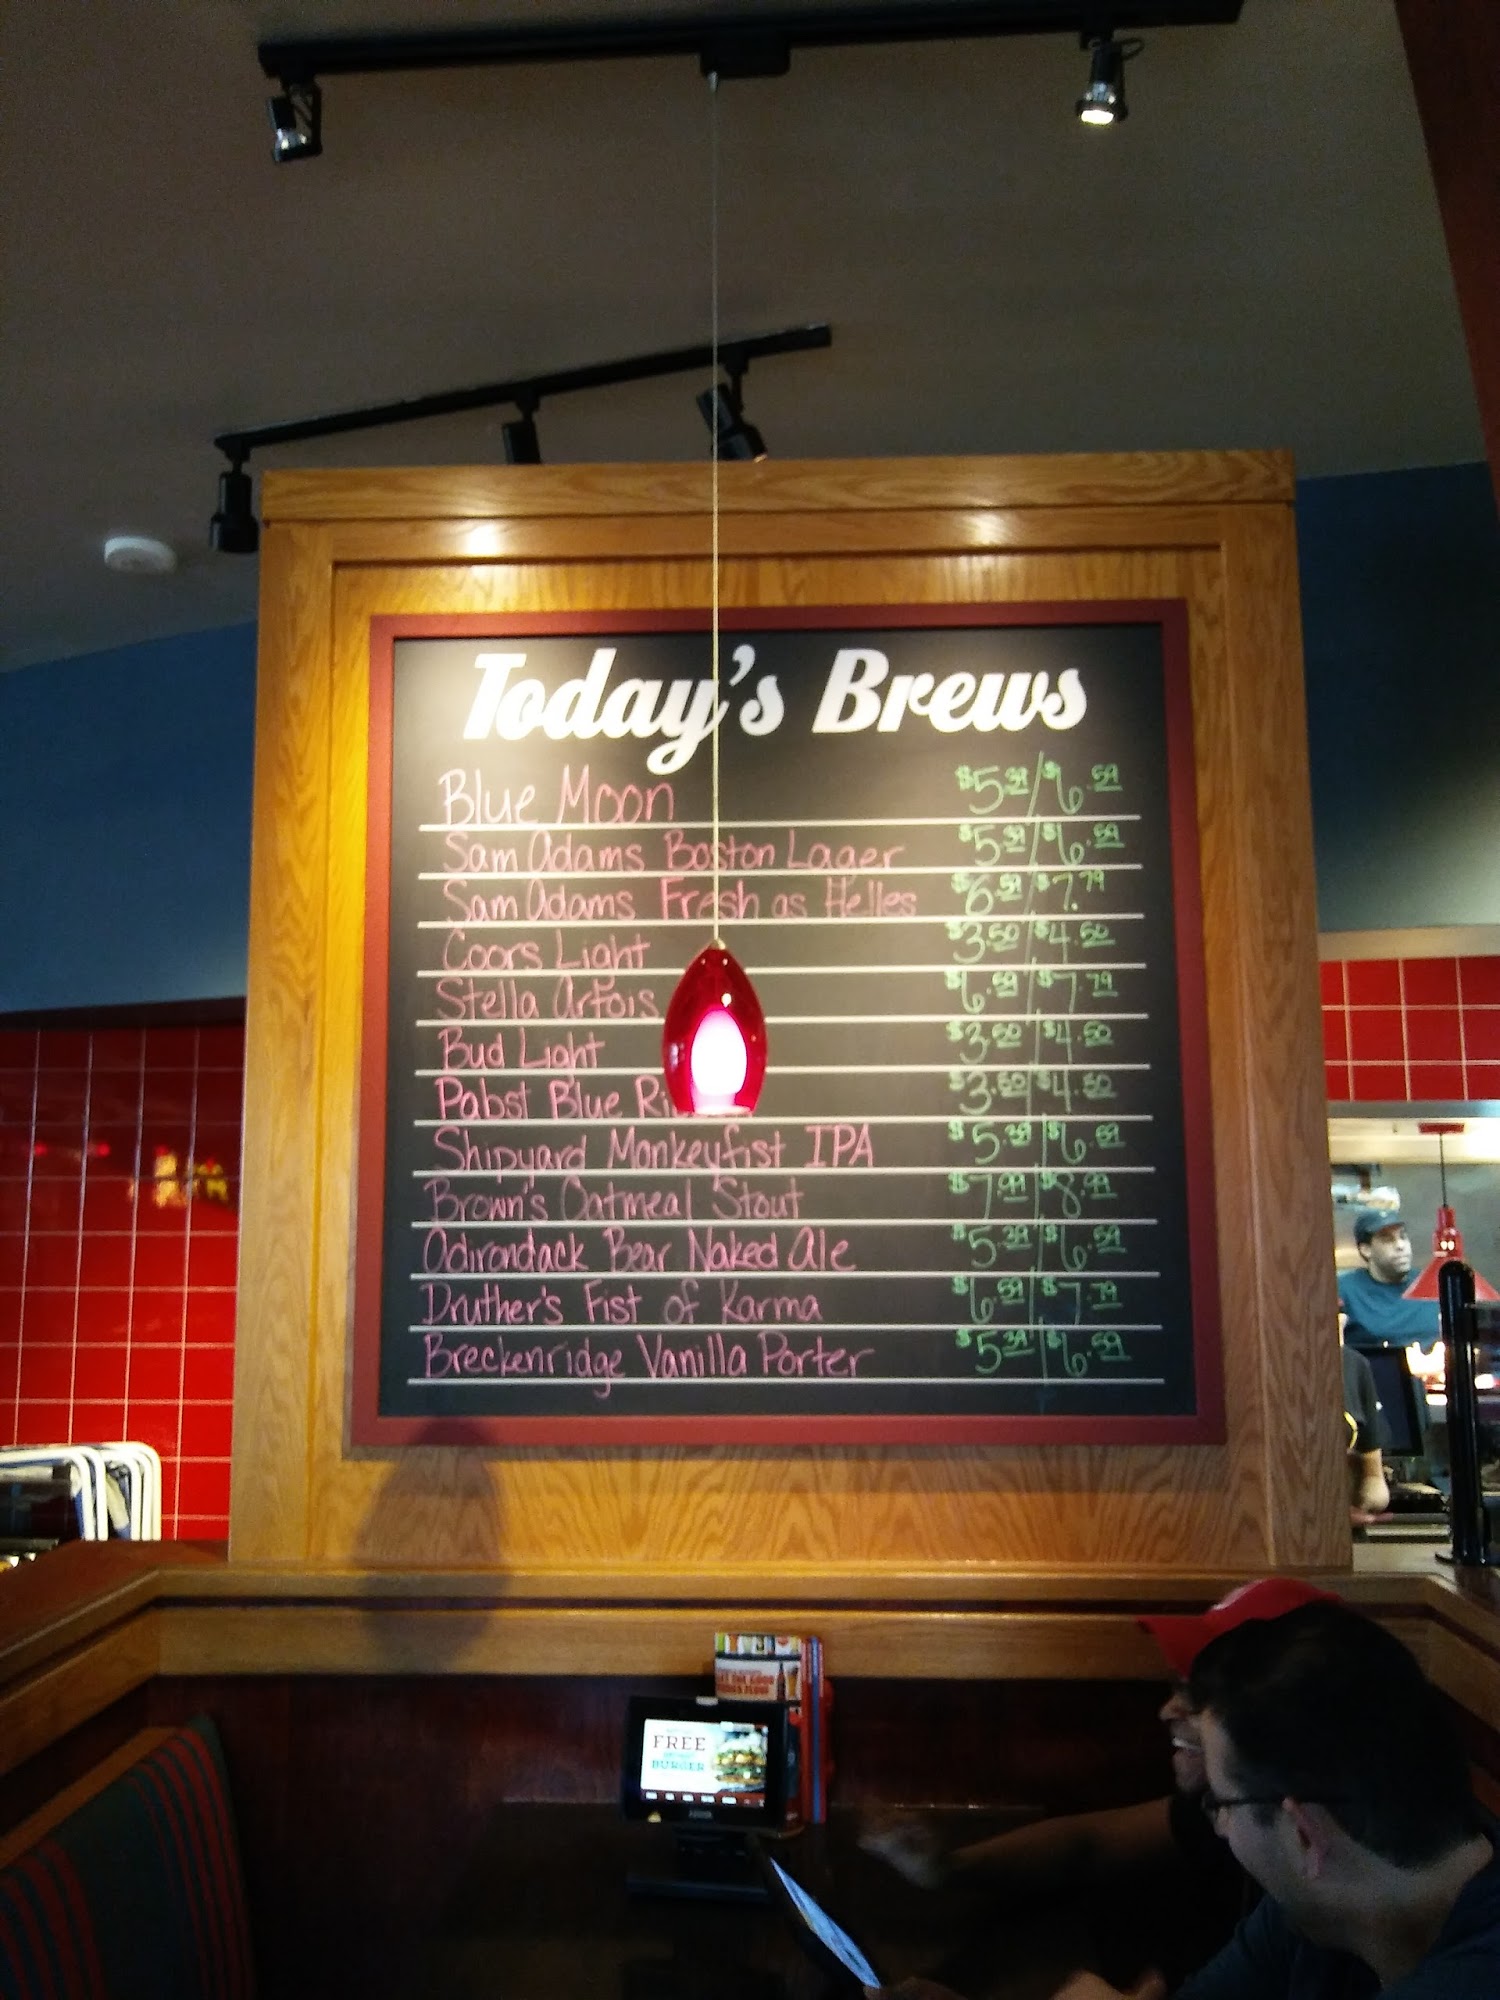 Today's Brews
Blue Moon $5.39/$6.59
Sam Adams Boston Lager $5.39/$6.59
Sam Adams Fresh as Helles $6.59/$7.79
Coors Light $3.50/$4.50
Stella Artois $6.59/$7.79
Bud Light $3.50/$4.50
Pabst Blue $3.50/$4.50
Shipyard Monkeyfist IPA $5.39/$6.59
Brown's Oatmeal Stout $7.99/$8.99
Adirondack Bear Naked Ale $5.39/$6.59
Druther's Fist of Karma $6.59/$7.79
Breckenridge Vanilla Porter $5.39/$6.59
FREE
BURGER